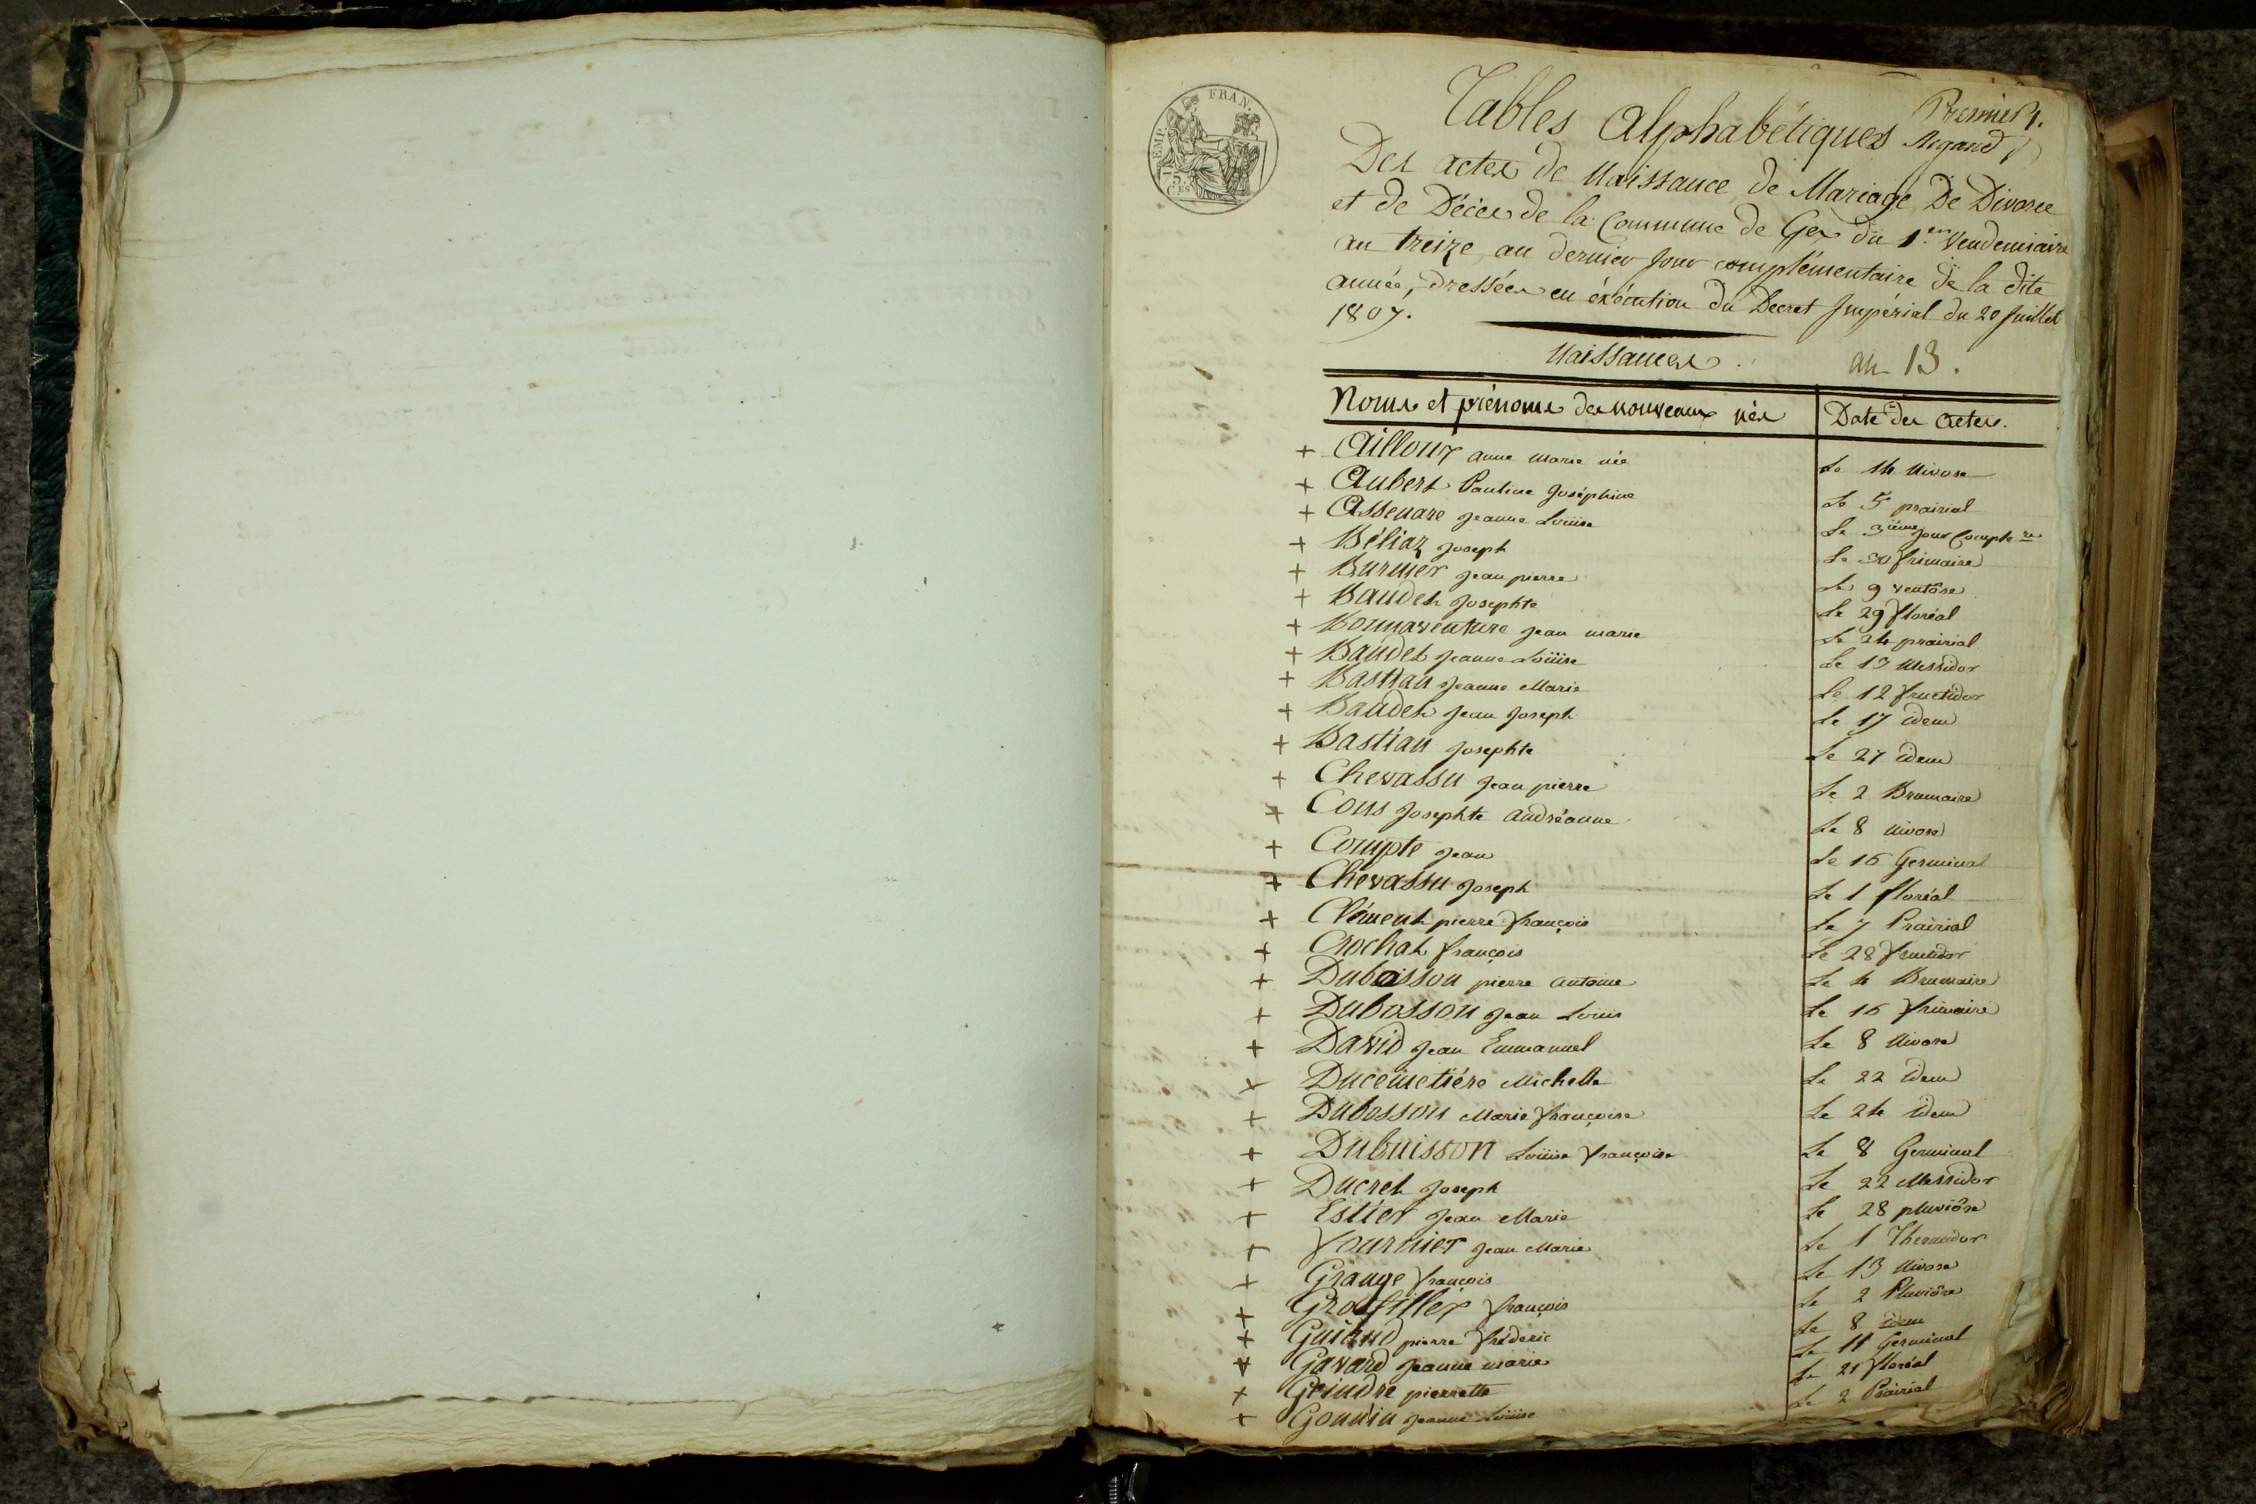 EMP. FRAN.
75.
CES
Premier
Tables Alphabétiques
Des actes de Naissance, de Mariage, De Divorce
et de Décès de la Commune de Gex du 1.er Vendemiaire
an treize, au dernier jour complémentaire de la dite
année, dressées en éxécution du Decret Impérial du 20 Juillet
1807.
Naissances. an 13.
Noms et prénoms des nouveaux nés Date des Actes.
+ Aillour anne marie née Le 14 Nivose
+ Aubert Pauline Joséphine Le 5 prairial
+ Assenare Jeanne Louise Le 3ième jour Comple.re
+ Béliaz Joseph Le 30 frimaire
+ Burnier Jean pierre Le 9 ventôse
+ Baudet Josephte Le 29 floréal
+ Bonnaventure Jean marie Le 24 prairial
+ Baudet Jeanne Loüise Le 13 Messidor
+ Bastian Jeanne Marie Le 12 fructidor
+ Baudet Jean Joseph Le 17 idem
+ Bastian Josephte Le 27 idem
+ Chevassu Jean pierre Le 2 Brumaire
+ Cous Josephte andréanne Le 8 Nivose
+ Compte Jean Le 16 Germinal
+ Chevassu Joseph Le 1 floréal
+ Clément pierre françois Le 7 Prairial
+ Crochat françois Le 28 fructidor
+ Duboisson pierre antoine Le 4 Brumaire
+ Dubosson Jean Louis Le 16 frimaire
+ David Jean Emmanuel Le 8 Nivose
+ Ducemetiére Michelle Le 22 idem
+ Dubosson Marie françoise Le 24 idem
+ Dubuisson Loüise françoise Le 8 Germinal
+ Ducret Joseph Le 22 Messidor
+ Estier Jean Marie Le 28 pluviôse
+ fournier Jean Marie Le 1 Thermidor
+ Grange françois Le 13 Nivose
+ Grosfillex françois Le 2 Pluviôse
+ Guiaud pierre fréderic Le 8 idem
+ Gavard Jeanne marie Le 11 Germinal
+ Geindre pierrette Le 21 floréal
+ Gonnin Jeanne Loüise Le 2 Prairial